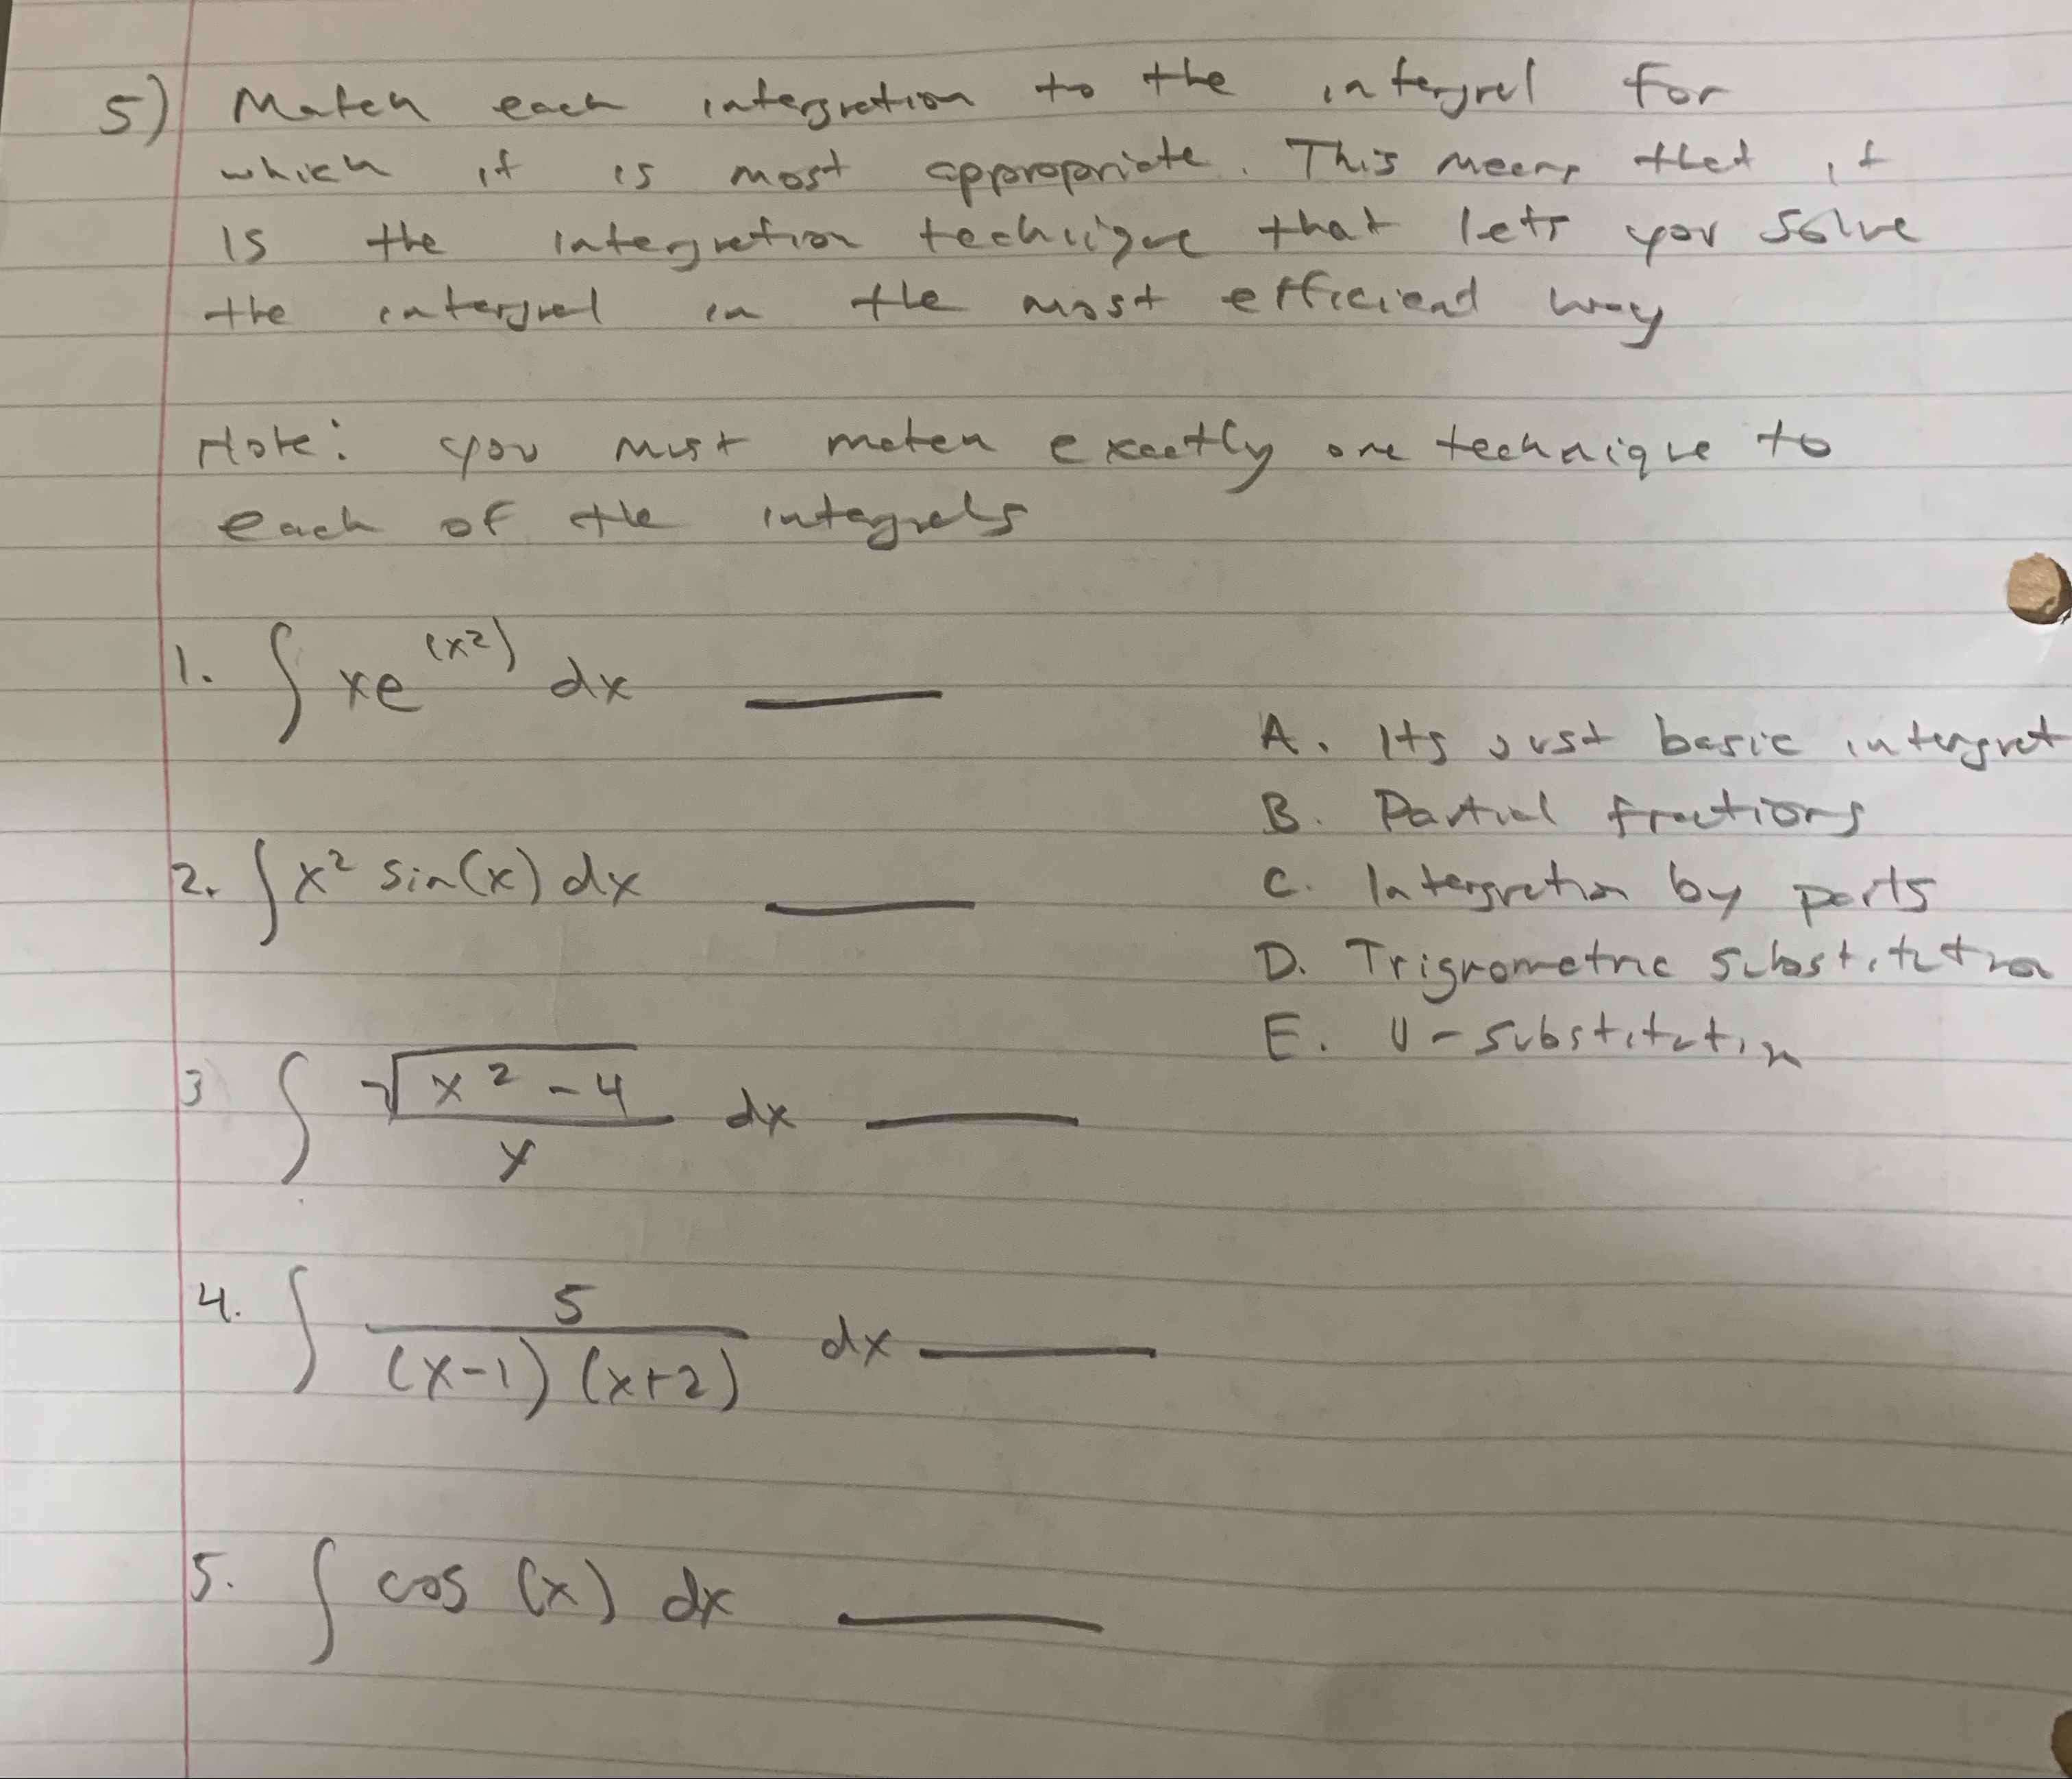 5) Match each intergration to the intergrel for
which it is most appropriate. This means that it
is the intergration technique that lets you solve
the intergrel in the most efficient way
Note: you must match exactly one technique to
each of the integrals
1. ∫ xe^(x²) dx ____
A. Its just basic intergrat
B. Partial fractions
2. ∫ x² sin(x) dx ____
C. Intergration by parts
D. Trignometric substitution
E. U-substitution
3 ∫ √(x² - 4) / x dx ____
4. ∫ 5 / ((x-1)(x+2)) dx ____
5. ∫ cos (x) dx ____